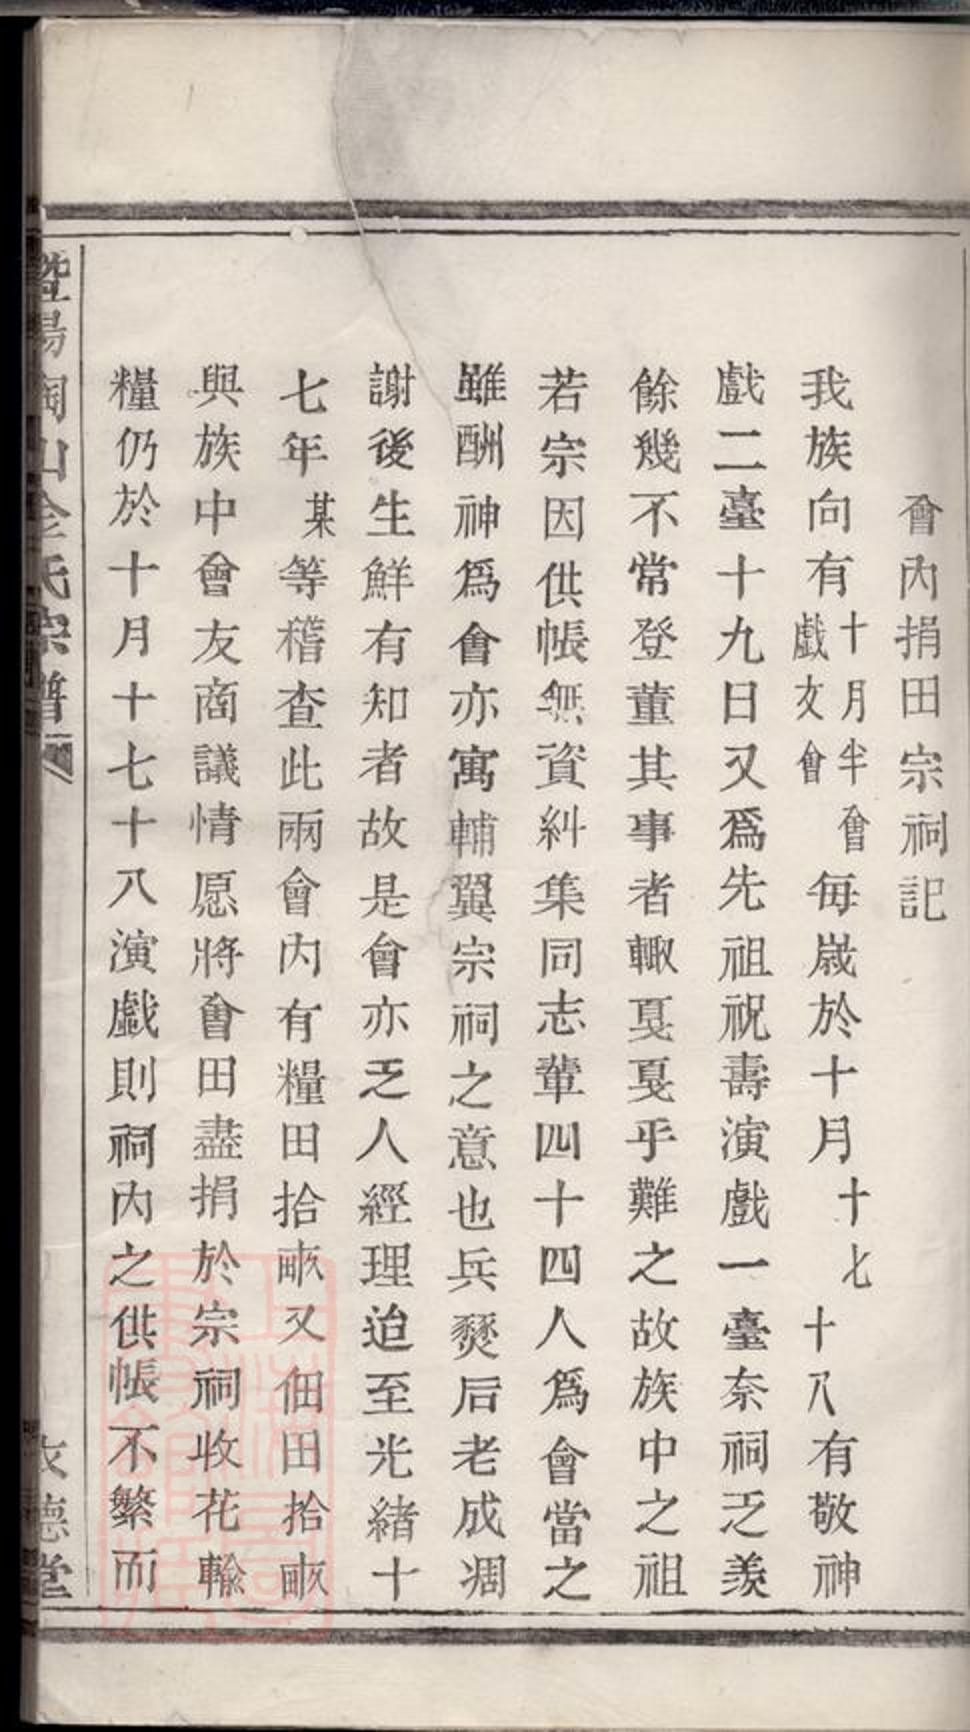 會內捐田宗祠記
我族向有十月半會戲友會每歲於十月十七十八有敬神
戲二臺十九日又爲先祖祝壽演戲一臺奈祠乏羨
餘幾不常登董其事者輙戛戛乎難之故族中之祖
若宗因供帳無資糾集同志輩四十四人爲會當之
雖酬神爲會亦寓輔翼宗祠之意也兵燹后老成凋
謝後生鮮有知者故是會亦乏人經理迨至光緒十
七年某等稽查此兩會內有糧田拾畝又佃田拾畝
與族中會友商議情愿將會田盡捐於宗祠收花輸
糧仍於十月十七十八演戲則祠內之供帳不繁而
暨陽陶山金氏宗譜
德堂